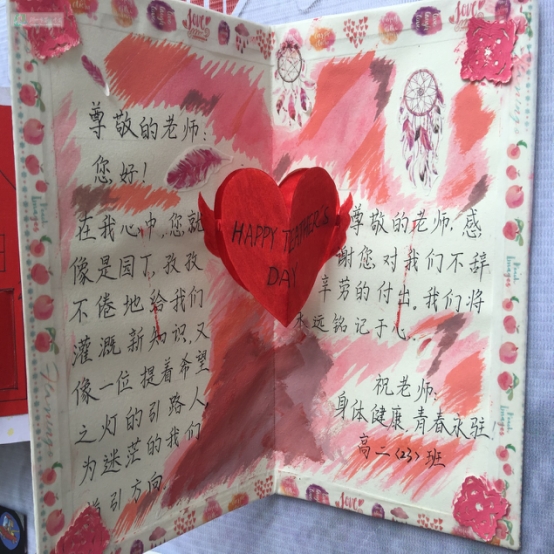 尊敬的老师:
您好!
在我心中,您就
像是园丁,孜孜
不倦地给我们
灌溉新知识,又
像一位提着希望
之灯的引路人,
为迷茫的我们
指引方向
HAPPY TEACHER'S
DAY
尊敬的老师,感
谢您对我们不辞
辛劳的付出,我们将
永远铭记于心.
祝老师:
身体健康,青春永驻!
高二<23>班